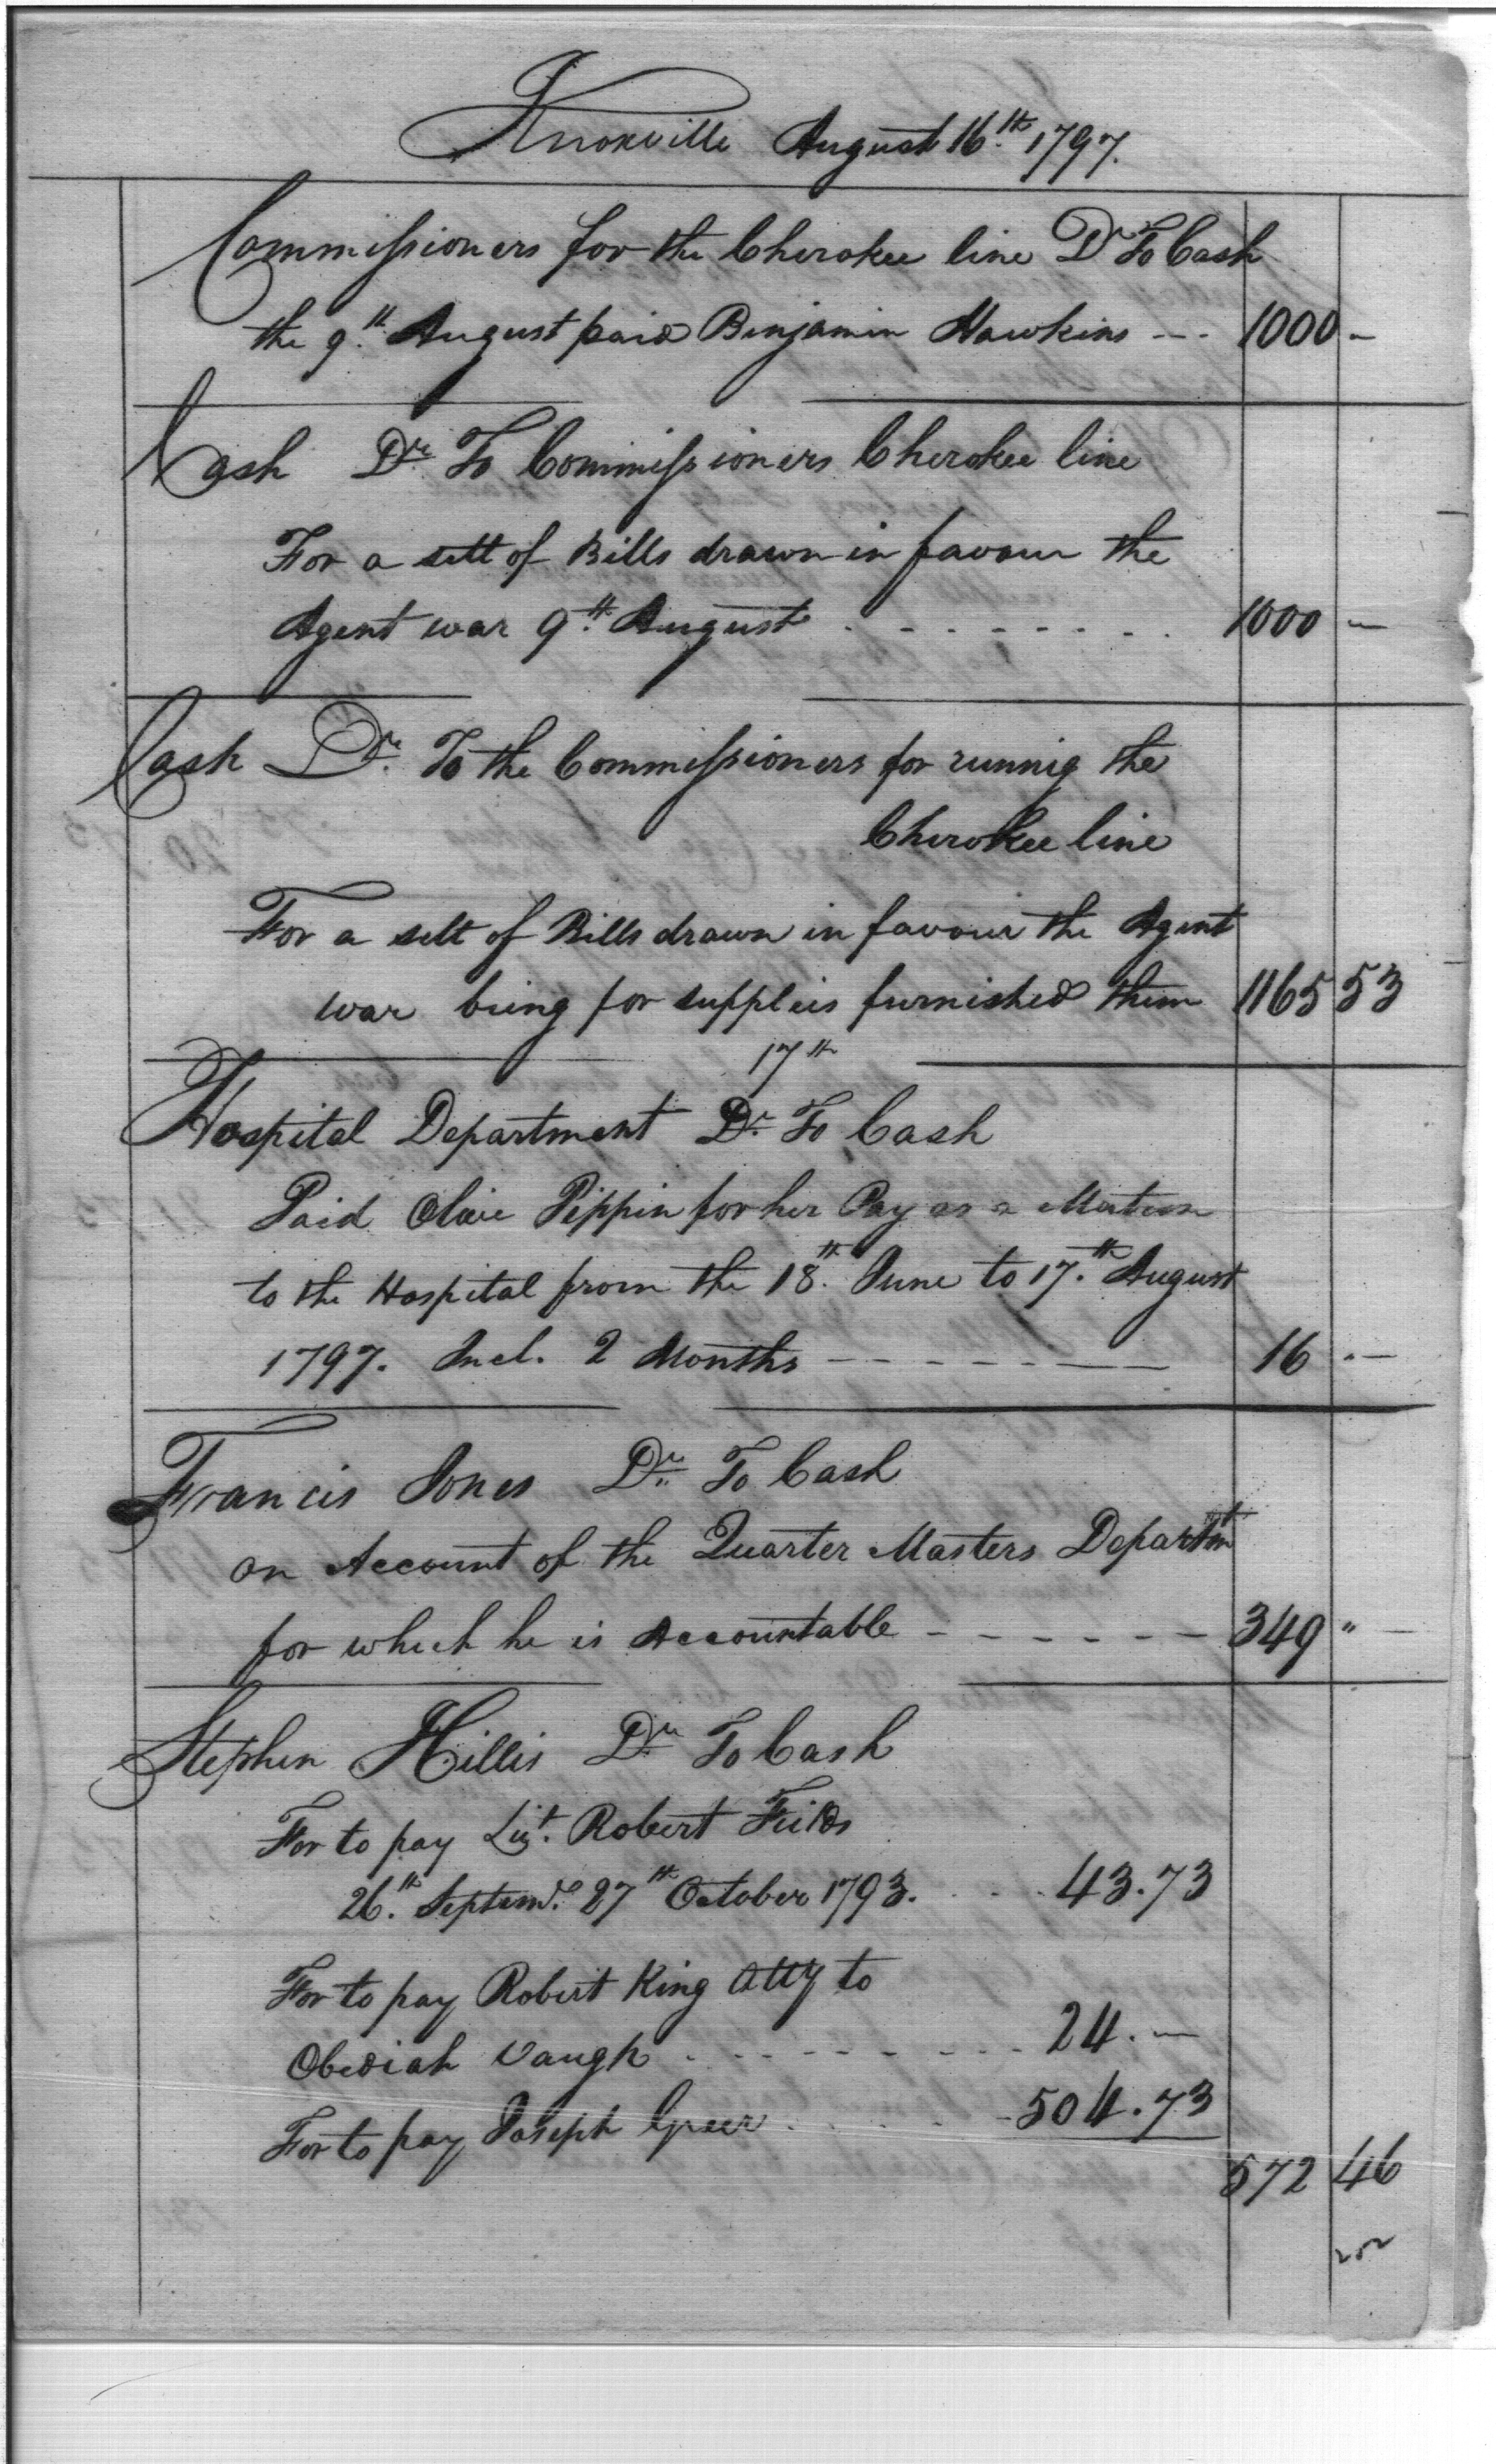 Knoxville August 16th 1797.
Commissioners for the Cherokee line Dr To Cash
the 9th August paid Benjamin Hawkins --- 1000 -
Cash Dr To Commissioners Cherokee line
For a sett of Bills drawn in favour the
Agent war 9th August . - - - - - - . 1000 -
Cash Dr. To the Commissioners for runnig the
Cherokee line
For a sett of Bills drawn in favour the Agent
war being for supplies furnished them 1165 53
17th
Hospital Department Dr. To Cash
Paid Pippin for her Pay as a Matron
to the Hospital from the 18th June to 17th August
1797. Incl. 2 Months - - - - - - 16 . -
Francis Jones Dr. To Cash
on Account of the Quarter Masters Departmt
for which he is Accountable - - - - - - 349 "
Stephen Hillis Dr To Cash
For to pay Lieut. Robert Feilds
26th Septemr. 27th October 1793. . . . 43.73
For to pay Robert King Atty to
Obediah Vaugh . - - - - - - - 24. -
For to pay Joseph Greer . . . . - 504.73
572 46